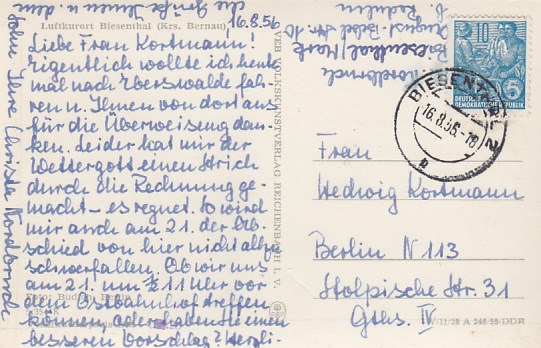 Luftkurort Biesenthal (Krs. Bernau)
16.8.56
Liebe Frau Kortmann!
Eigentlich wollte ich heute
mal nach Eberswalde fah-
ren u. Ihnen von dort aus
für die Überweisung dan-
ken. Leider hat mir der
Wettergott einen Strich
durch die Rechnung ge-
macht – es regnet. So wird
mir auch am 21. der Ab-
schied von hier nicht allzu
schwerfallen. Ob wir uns
am 21. um 11 Uhr vor
dem Ostbahnhof treffen
können oder haben Sie einen
besseren Vorschlag? Herzli-
che Grüße Ihnen u. dem
Sohne Ihre Christa
VEB VOLKSKUNSTVERLAG REICHENBACH I. V.
Biesenthal/Mark
August Bebel Str. 10
DEUTSCHE
DEMOKRATISCHE REPUBLIK
10
6
BIESENTHAL
16.8.56.-18
Frau
Hedwig Kortmann
Berlin N 113
Stolpische Str. 31
Gths. IV